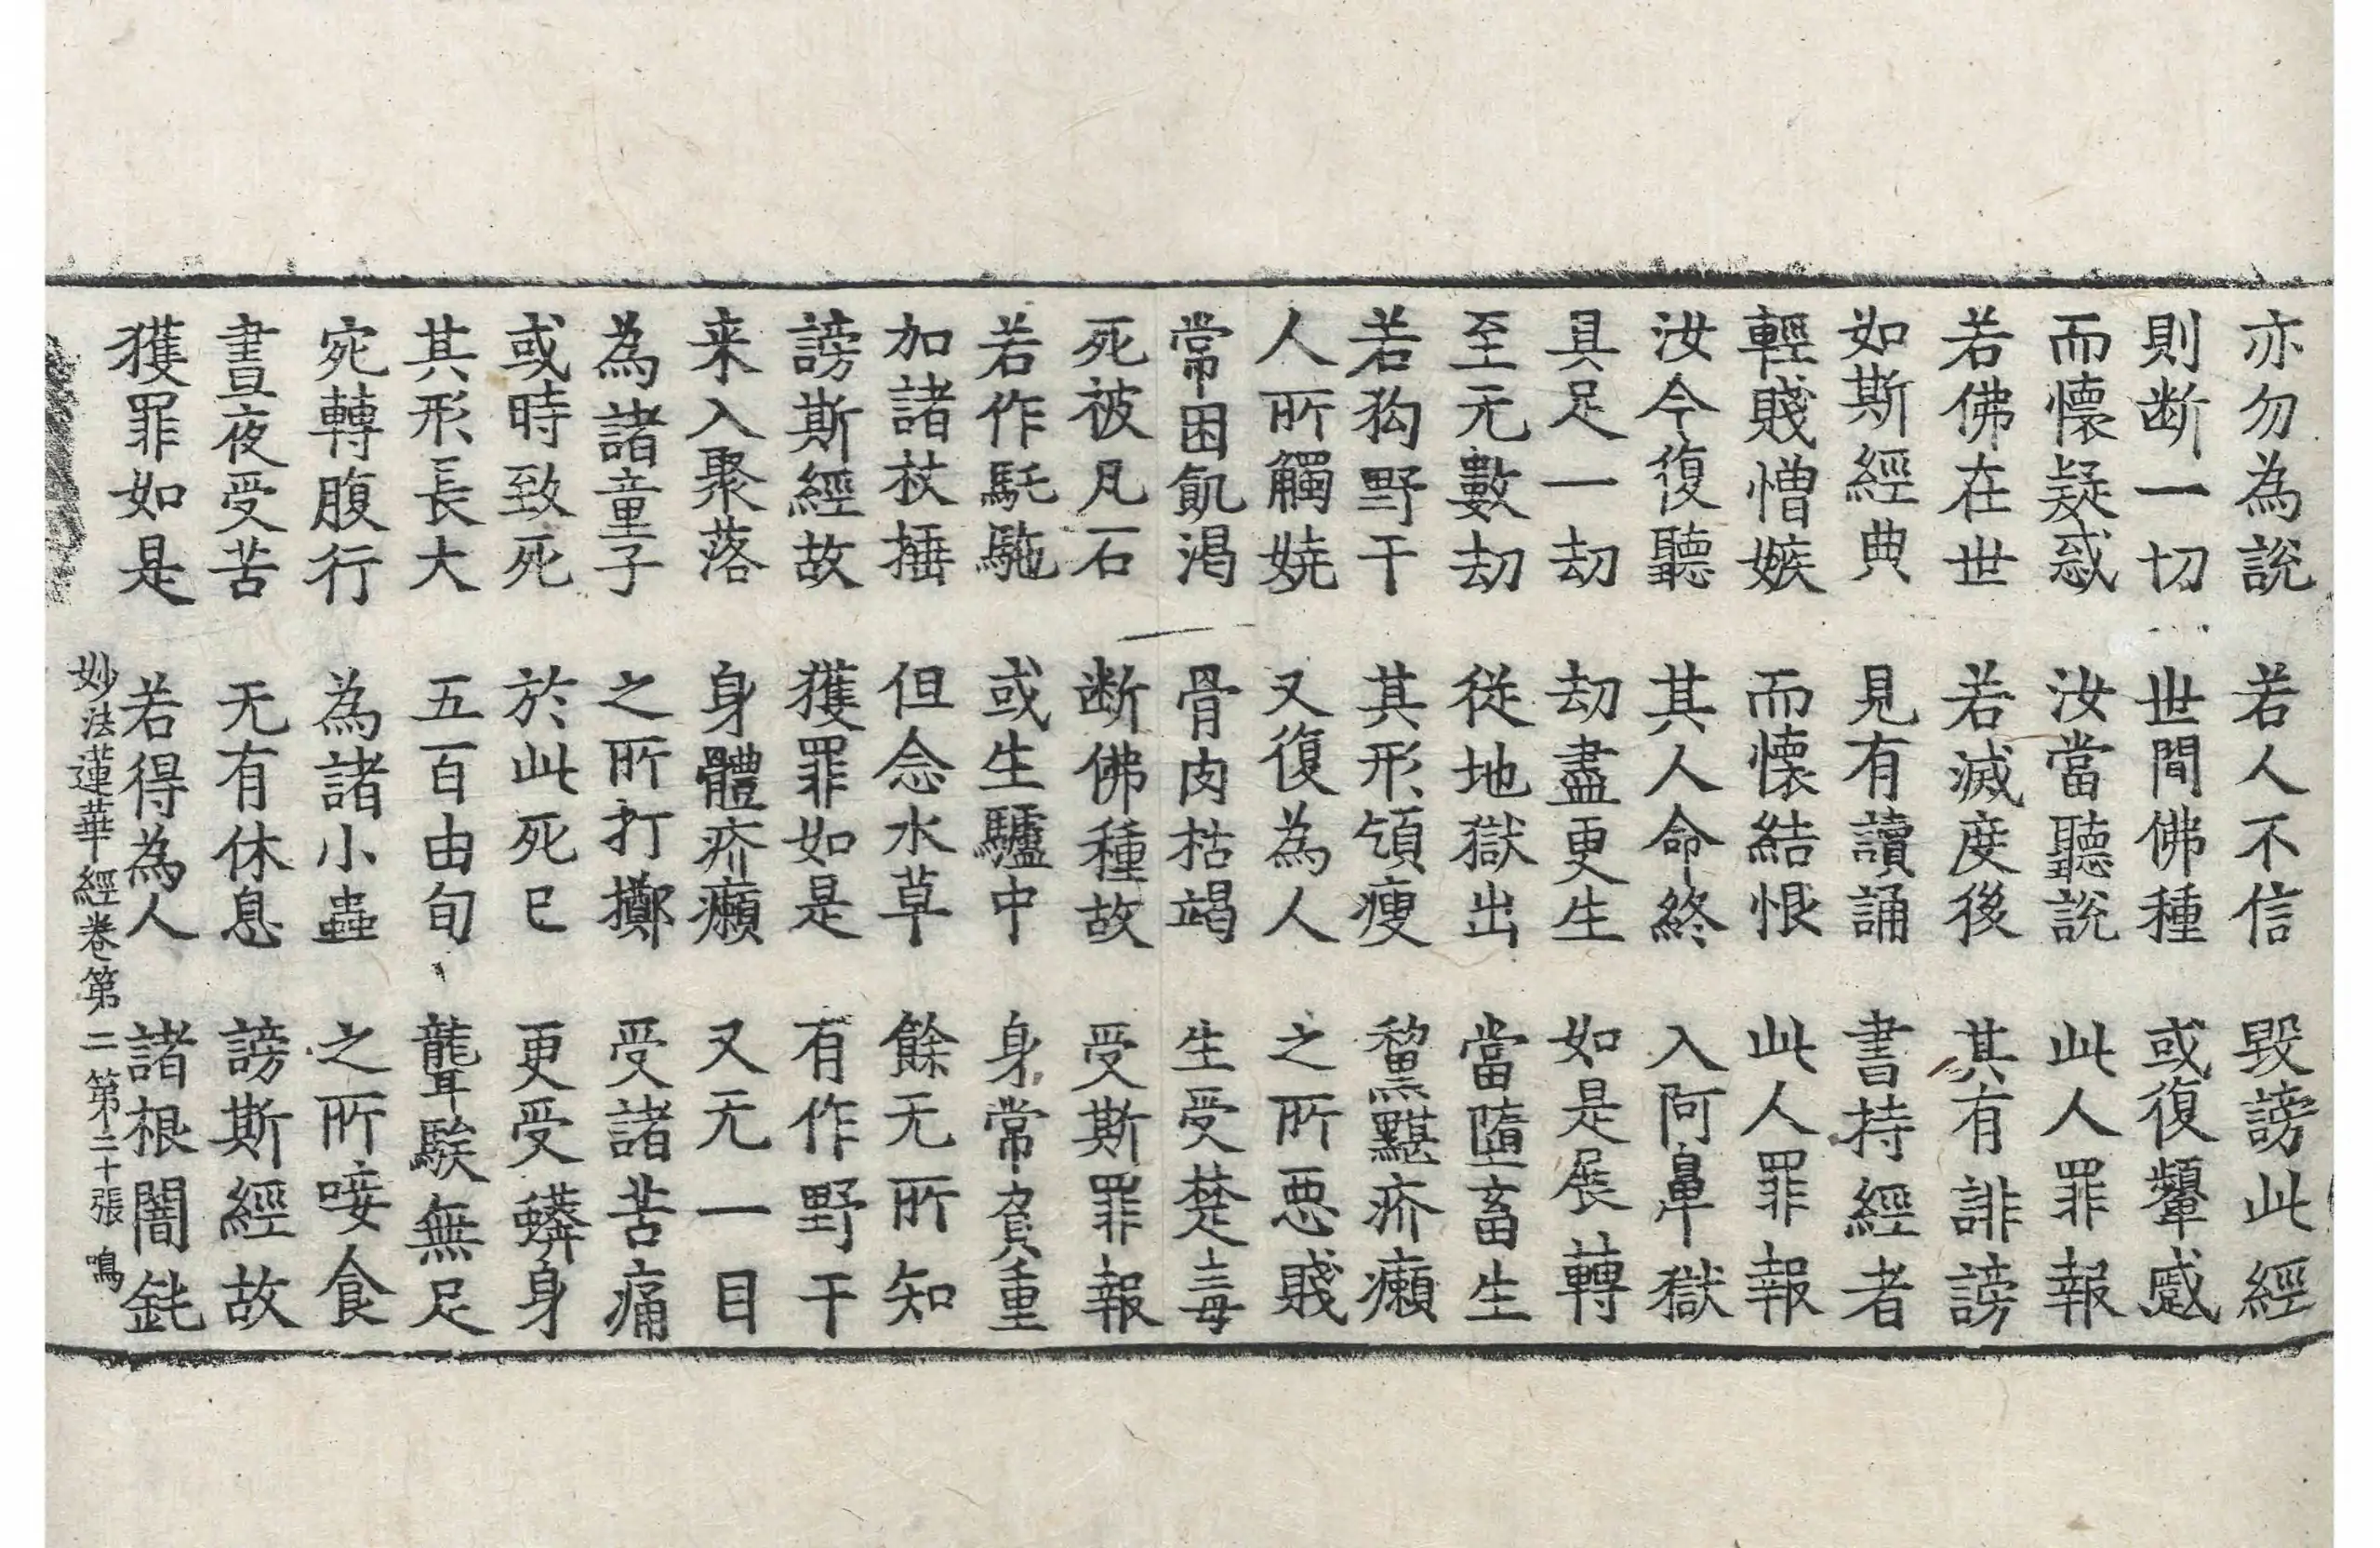 亦勿為說 若人不信 毀謗此經
則断一切 世間佛種 或復顰蹙
而懷疑惑 汝當聽說 此人罪報
若佛在世 若滅度後 其有誹謗
如斯經典 見有讀誦 書持經者
輕賤憎嫉 而懷結恨 此人罪報
汝今復聽 其人命終 入阿鼻獄
具足一劫 劫盡更生 如是展轉
至无數劫 從地獄出 當墮畜生
若狗野干 其形頜瘦 黧黮疥癩
人所觸嬈 又復為人 之所惡賤
常困飢渴 骨肉枯竭 生受楚毒
死被凡石 断佛種故 受斯罪報
若作馲駞 或生驢中 身常負重
加諸杖捶 但念水草 餘无所知
謗斯經故 獲罪如是 有作野干
来入聚落 身體疥癩 又无一目
為諸童子 之所打擲 受諸苦痛
或時致死 於此死已 更受蟒身
其形長大 五百由旬 聾騃無足
宛轉腹行 為諸小蟲 之所唼食
晝夜受苦 无有休息 謗斯經故
獲罪如是 若得為人 諸根闇鈍
妙法蓮華經卷第二 第二十張 鳴